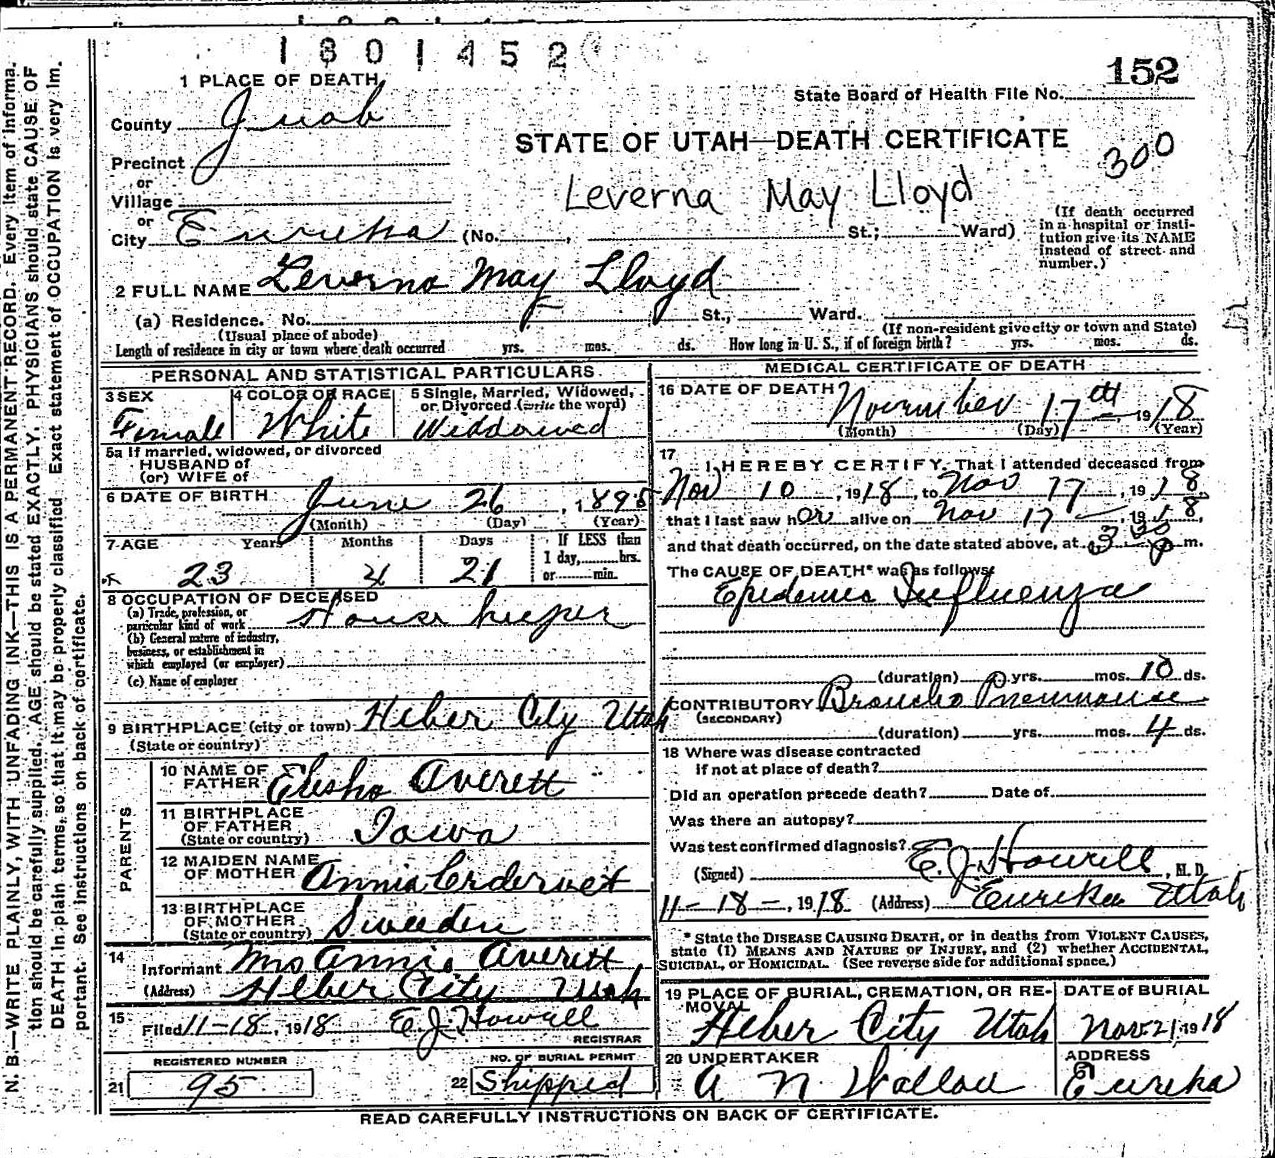 1801452
152
1 PLACE OF DEATH
State Board of Health File No.
County Juab
STATE OF UTAH—DEATH CERTIFICATE
300
Precinct
or
Village
Leverna May Lloyd
or
City Eureka (No. , St.; Ward)
(If death occurred in a hospital or institution give its NAME instead of street and number.)
2 FULL NAME Leverna May Lloyd
(a) Residence. No. St., Ward.
(Usual place of abode) (If non-resident give city or town and State)
Length of residence in city or town where death occurred yrs. mos. ds. How long in U. S., if of foreign birth? yrs. mos. ds.
PERSONAL AND STATISTICAL PARTICULARS
3 SEX
Female
4 COLOR OR RACE
White
5 Single, Married, Widowed, or Divorced (write the word)
Widdowed
5a If married, widowed, or divorced
HUSBAND of
(or) WIFE of
6 DATE OF BIRTH June 26, 1895
(Month) (Day) (Year)
7 AGE Years Months Days If LESS than
1 day, hrs.
or min.
23 4 21
8 OCCUPATION OF DECEASED
(a) Trade, profession, or particular kind of work House keeper
(b) General nature of industry, business, or establishment in which employed (or employer)
(c) Name of employer
9 BIRTHPLACE (city or town) Heber City Utah
(State or country)
PARENTS
10 NAME OF FATHER Elisha Averett
11 BIRTHPLACE OF FATHER Iowa
(State or country)
12 MAIDEN NAME OF MOTHER Annia
13 BIRTHPLACE OF MOTHER Sweeden
(State or country)
14 Informant Mrs Annie Averett
(Address) Heber City Utah
15 Filed 11-18, 1918 E. J. Howell
REGISTRAR
REGISTERED NUMBER
21 95
NO. OF BURIAL PERMIT
22 Shipped
MEDICAL CERTIFICATE OF DEATH
16 DATE OF DEATH November 17th 1918
(Month) (Day) (Year)
17
I HEREBY CERTIFY, That I attended deceased from
Nov 10, 1918, to Nov 17, 1918,
that I last saw her alive on Nov 17, 1918,
and that death occurred, on the date stated above, at 3 p m.
The CAUSE OF DEATH* was as follows:
Epidemic Influenza
(duration) 0 yrs. mos. 10 ds.
CONTRIBUTORY Broncho Pneumonia
(SECONDARY)
(duration) yrs. mos. 4 ds.
18 Where was disease contracted
if not at place of death?
Did an operation precede death? Date of
Was there an autopsy?
Was test confirmed diagnosis?
(Signed) E. J. Howell, M. D.
11-18-, 1918 (Address) Eureka Utah
* State the DISEASE CAUSING DEATH, or in deaths from VIOLENT CAUSES,
state (1) MEANS AND NATURE OF INJURY, and (2) whether ACCIDENTAL,
SUICIDAL, or HOMICIDAL. (See reverse side for additional space.)
19 PLACE OF BURIAL, CREMATION, OR REMOVAL
Heber City Utah
DATE of BURIAL
Nov 21, 1918
20 UNDERTAKER
A N Wallace
ADDRESS
Eureka
READ CAREFULLY INSTRUCTIONS ON BACK OF CERTIFICATE.
N. B.—WRITE PLAINLY, WITH UNFADING INK—THIS IS A PERMANENT RECORD. Every item of informa-
tion should be carefully supplied. AGE should be stated EXACTLY, PHYSICIANS should state CAUSE OF
DEATH in plain terms, so that it may be properly classified. Exact statement of OCCUPATION is very im-
portant. See instructions on back of certificate.